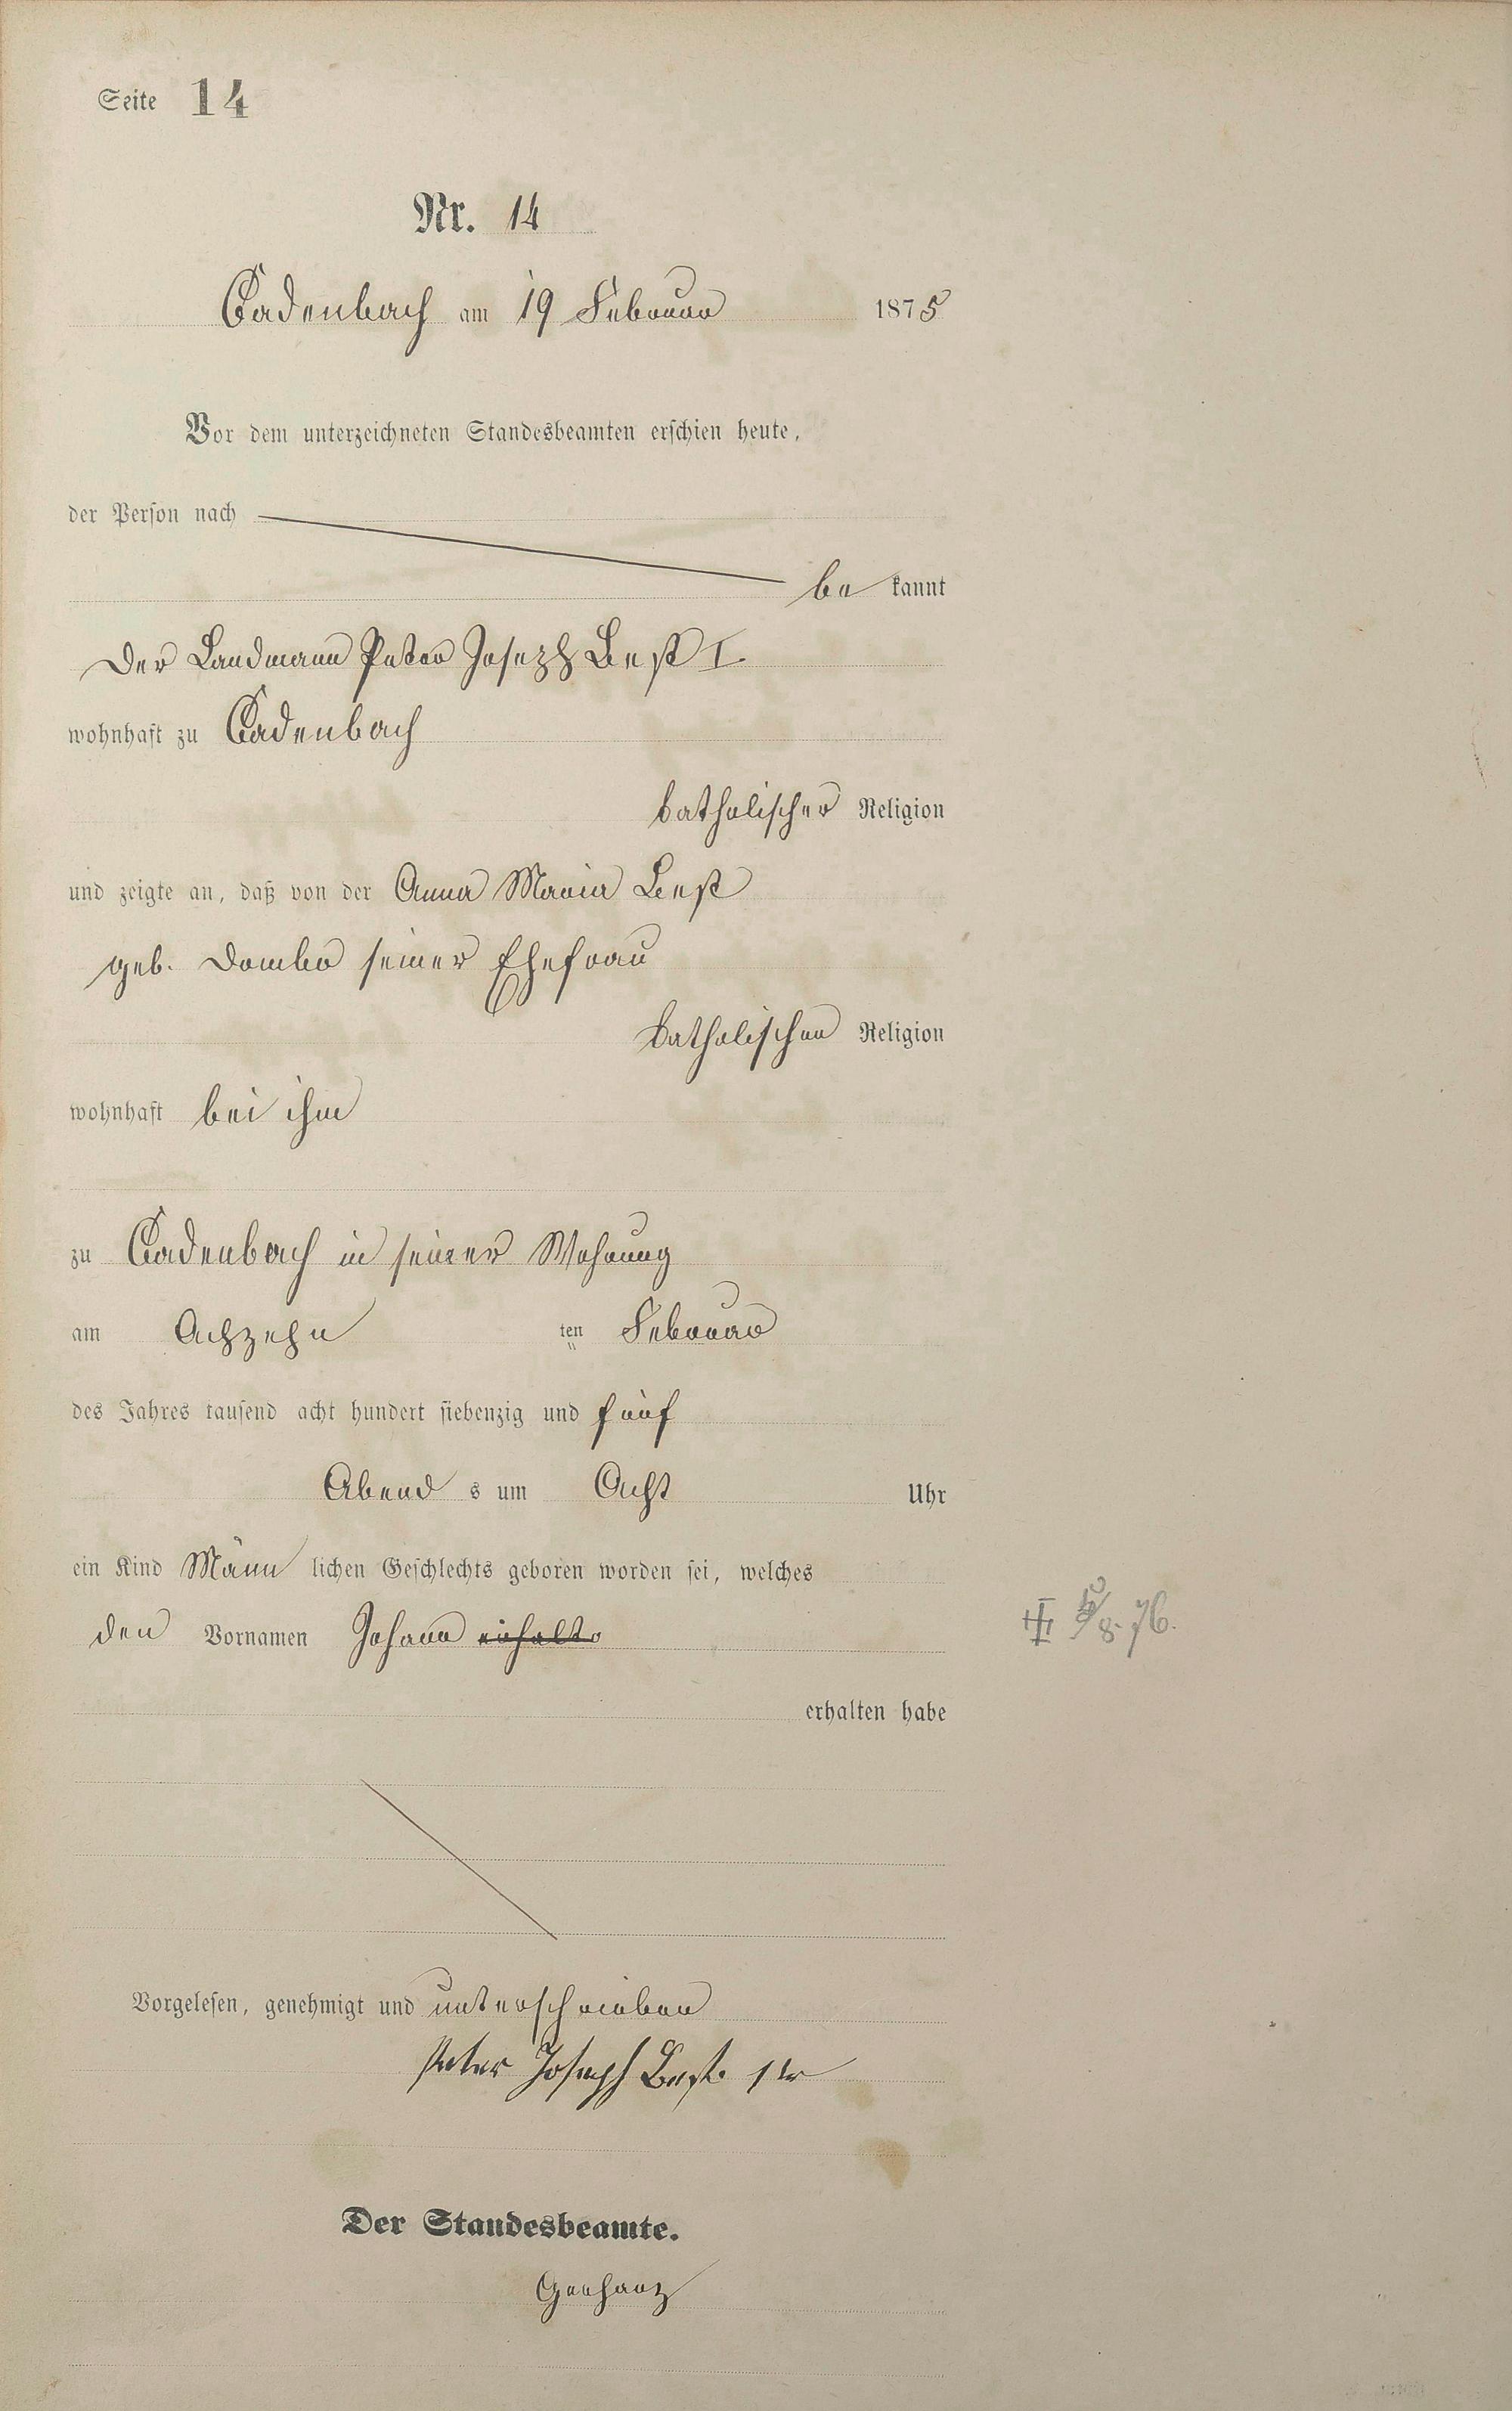 Seite 14
Nr. 14
Cadenbach am 19 Februar 1875
Vor dem unterzeichneten Standesbeamten erschien heute,
der Person nach
be kannt
Der Landmann Peter Joseph Best I.
wohnhaft zu Cadenbach
katholischer Religion
und zeigte an, daß von der Anna Maria Best
geb. seiner Ehefrau
katholischen Religion
wohnhaft bei ihm
zu Cadenbach in seiner Wohnung
am Achzehn ten Februar
des Jahres tausend acht hundert siebenzig und fünf
Abend s um Acht Uhr
ein Kind Männ lichen Geschlechts geboren worden sei, welches
den Vornamen Johann
8. 76.
erhalten habe
Vorgelesen, genehmigt und unterschrieben
Peter Joseph Best 1ter
Der Standesbeamte.
Gerharz